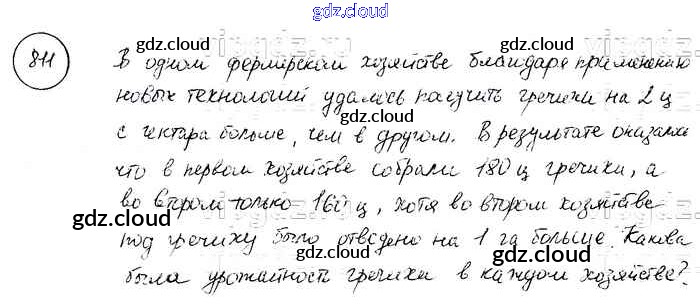 gdz.cloud
811
В одном фермерском хозяйстве благодаря применению
новых технологий удалось получить гречихи на 2 ц
с гектара больше, чем в другом. В результате оказалось
что в первом хозяйстве собрали 180 ц гречихи, а
во втором только 160 ц, хотя во втором хозяйстве
под гречиху было отведено на 1 га больше. Какова
была урожайность гречихи в каждом хозяйстве?